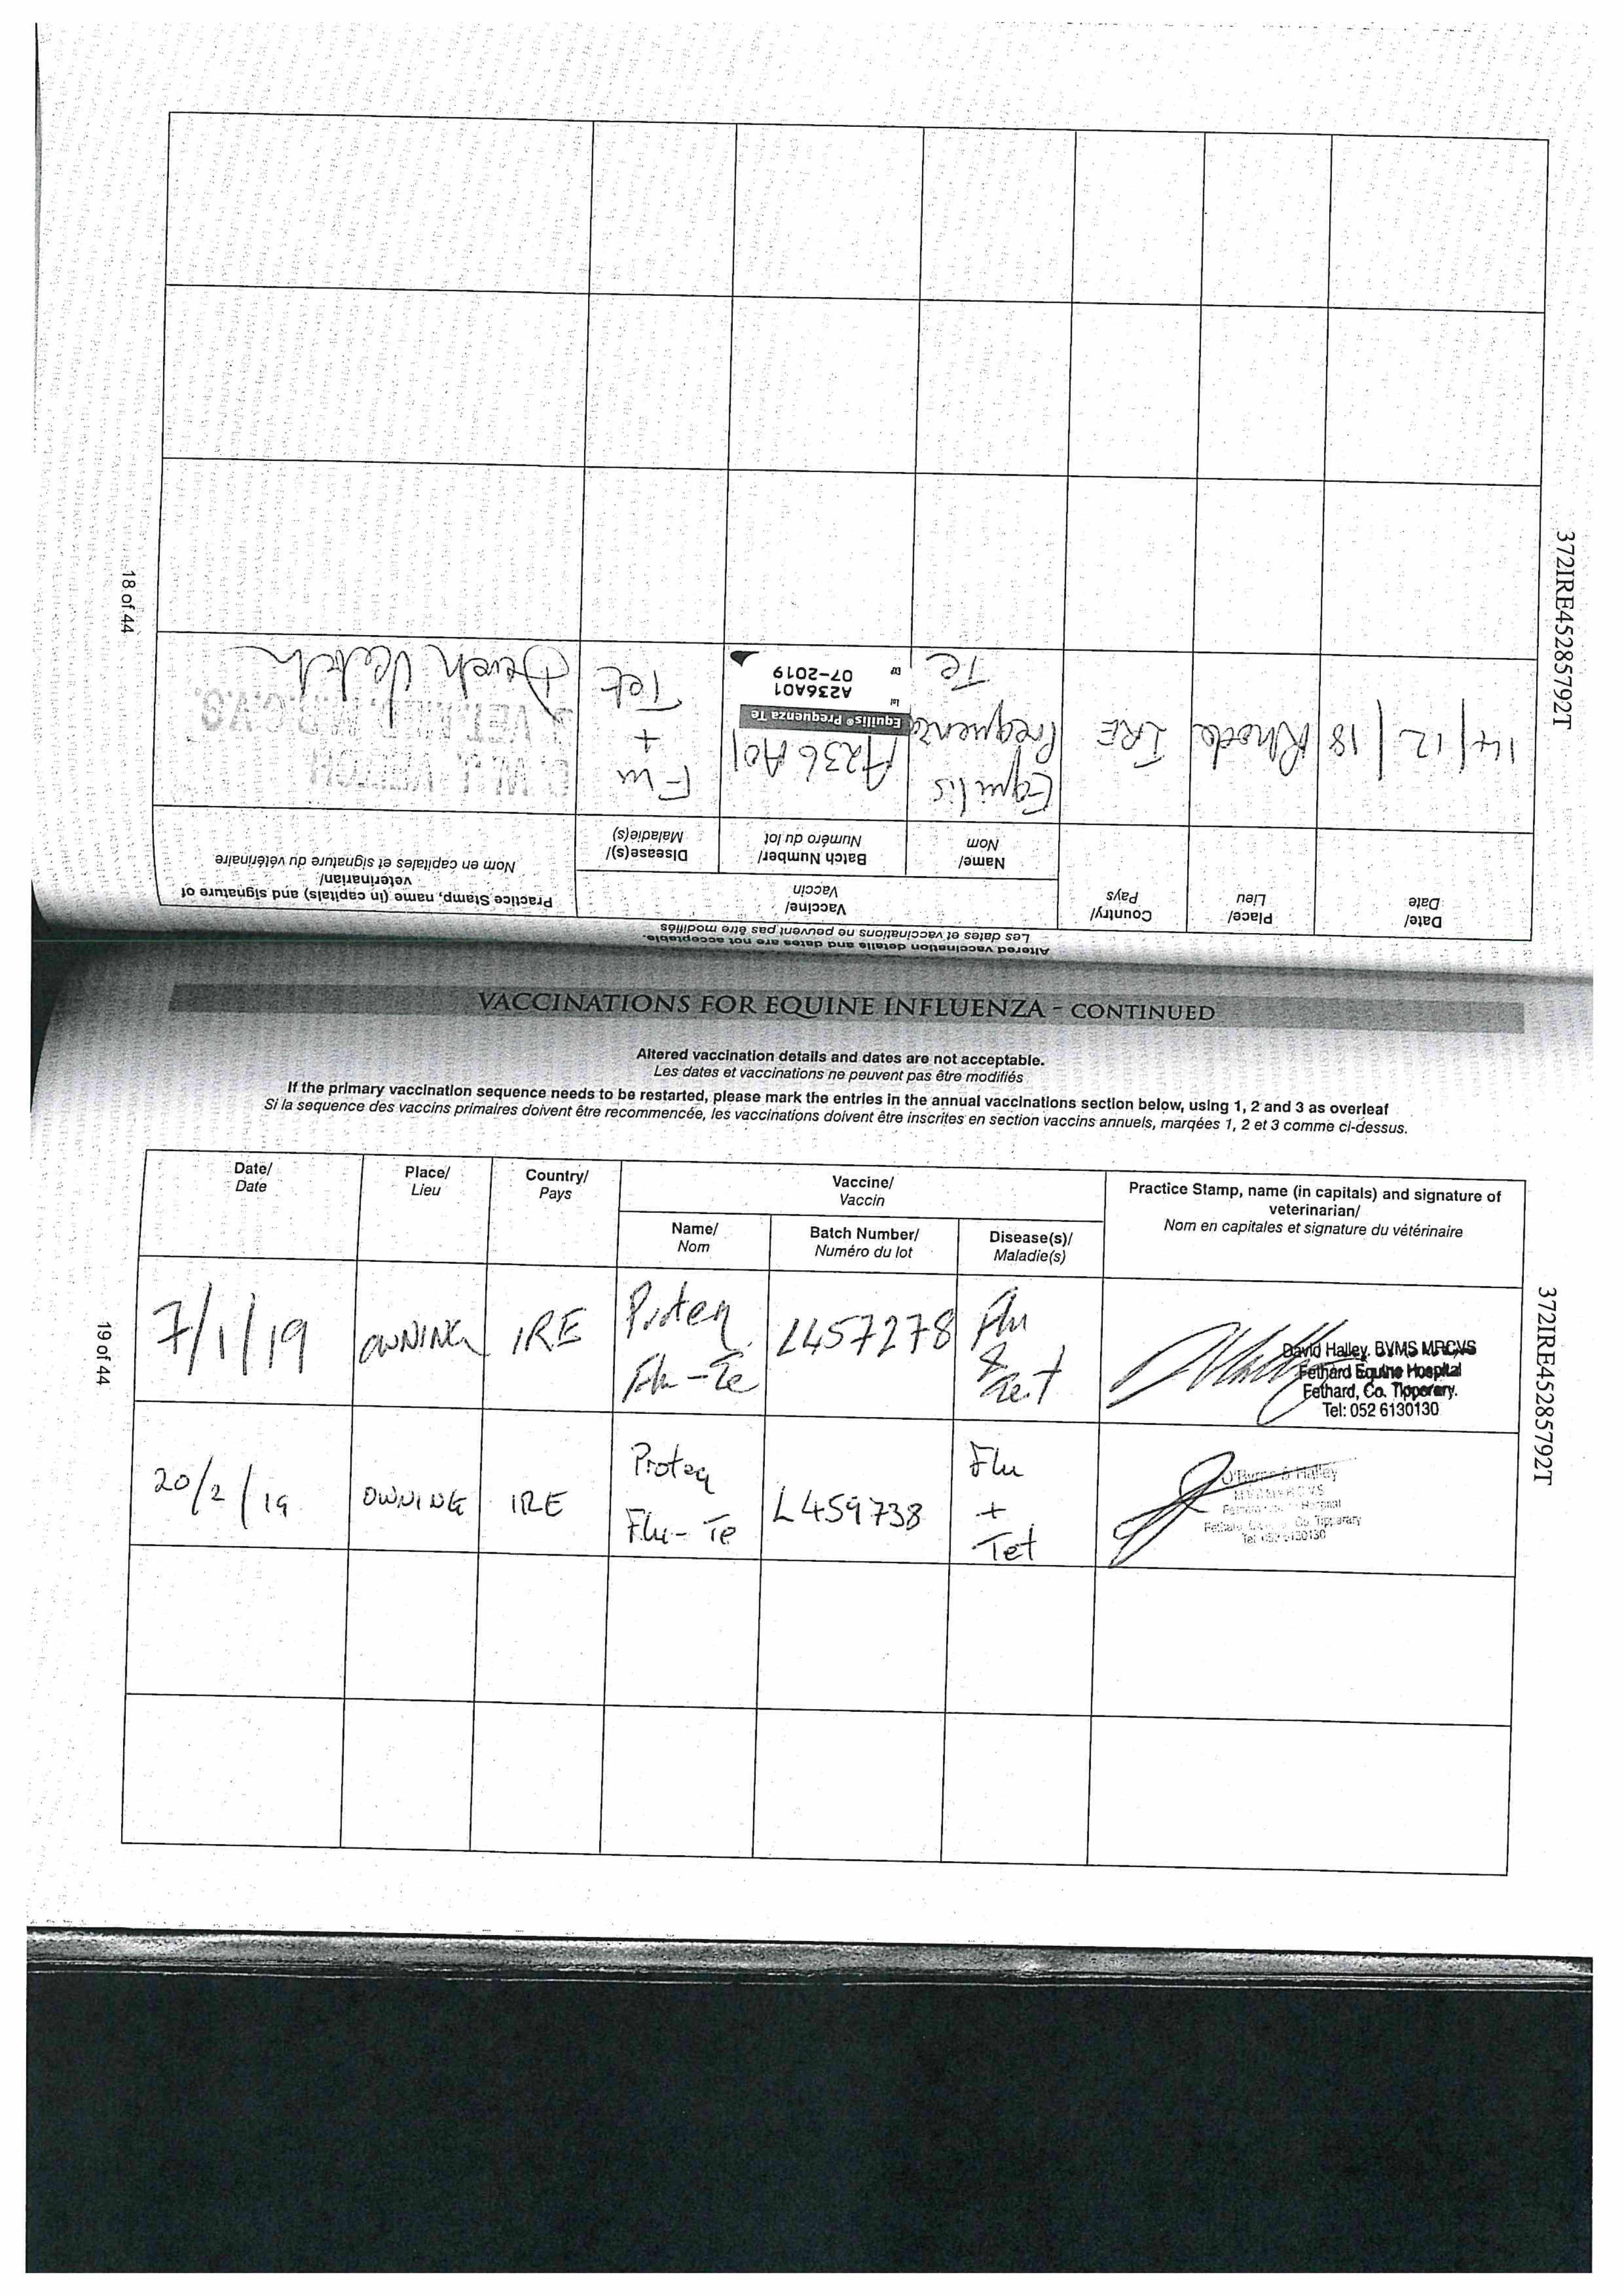 Altered vaccination details and dates are not acceptable.
Les dates et vaccinations ne peuvent pas être modifiés
Date/
Date
Place/
Lieu
Country/
Pays
Vaccine/
Vaccin
Practice Stamp, name (in capitals) and signature of
veterinarian/
Nom en capitales et signature du vétérinaire
Name/
Nom
Batch Number/
Numéro du lot
Disease(s)/
Maladie(s)
14/12/18
Rhode
IRE
Equilis
Prequenza
Te
A236A01
Equilis® Prequenza Te
Lot
A236A01
07-2019
Flu
+
Tet
18 of 44
372IRE45285792T
VACCINATIONS FOR EQUINE INFLUENZA - CONTINUED
Altered vaccination details and dates are not acceptable.
Les dates et vaccinations ne peuvent pas être modifiés
If the primary vaccination sequence needs to be restarted, please mark the entries in the annual vaccinations section below, using 1, 2 and 3 as overleaf
Si la sequence des vaccins primaires doivent être recommencée, les vaccinations doivent être inscrites en section vaccins annuels, marqées 1, 2 et 3 comme ci-dessus.
Date/
Date
Place/
Lieu
Country/
Pays
Vaccine/
Vaccin
Practice Stamp, name (in capitals) and signature of
veterinarian/
Nom en capitales et signature du vétérinaire
Name/
Nom
Batch Number/
Numéro du lot
Disease(s)/
Maladie(s)
7/1/19
OWNING
IRE
Proteq
Flu-Te
L457278
Flu
&
Tet
David Halley, BVMS MRCVS
Fethard Equine Hospital
Fethard, Co. Tipperary.
Tel: 052 6130130
20/2/19
OWNING
IRE
Proteq
Flu-Te
L459738
Flu
+
Tet
O'Byrne & Halley
Co. Tipperary
Tel: 052 6130130
19 of 44
372IRE45285792T